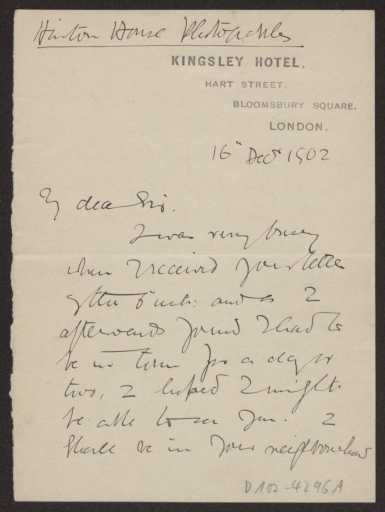 Hinton House Photographs
KINGSLEY HOTEL,
HART STREET,
BLOOMSBURY SQUARE,
LONDON.
16th Decr 1902
My dear Sir.
I was very busy
when I received your letter
of the 5 inst: and as I
afterwards found I had to
be in town for a day or
two, I hoped I might
be able to see you. I
shall be in your neighbourhood
D102-4296A